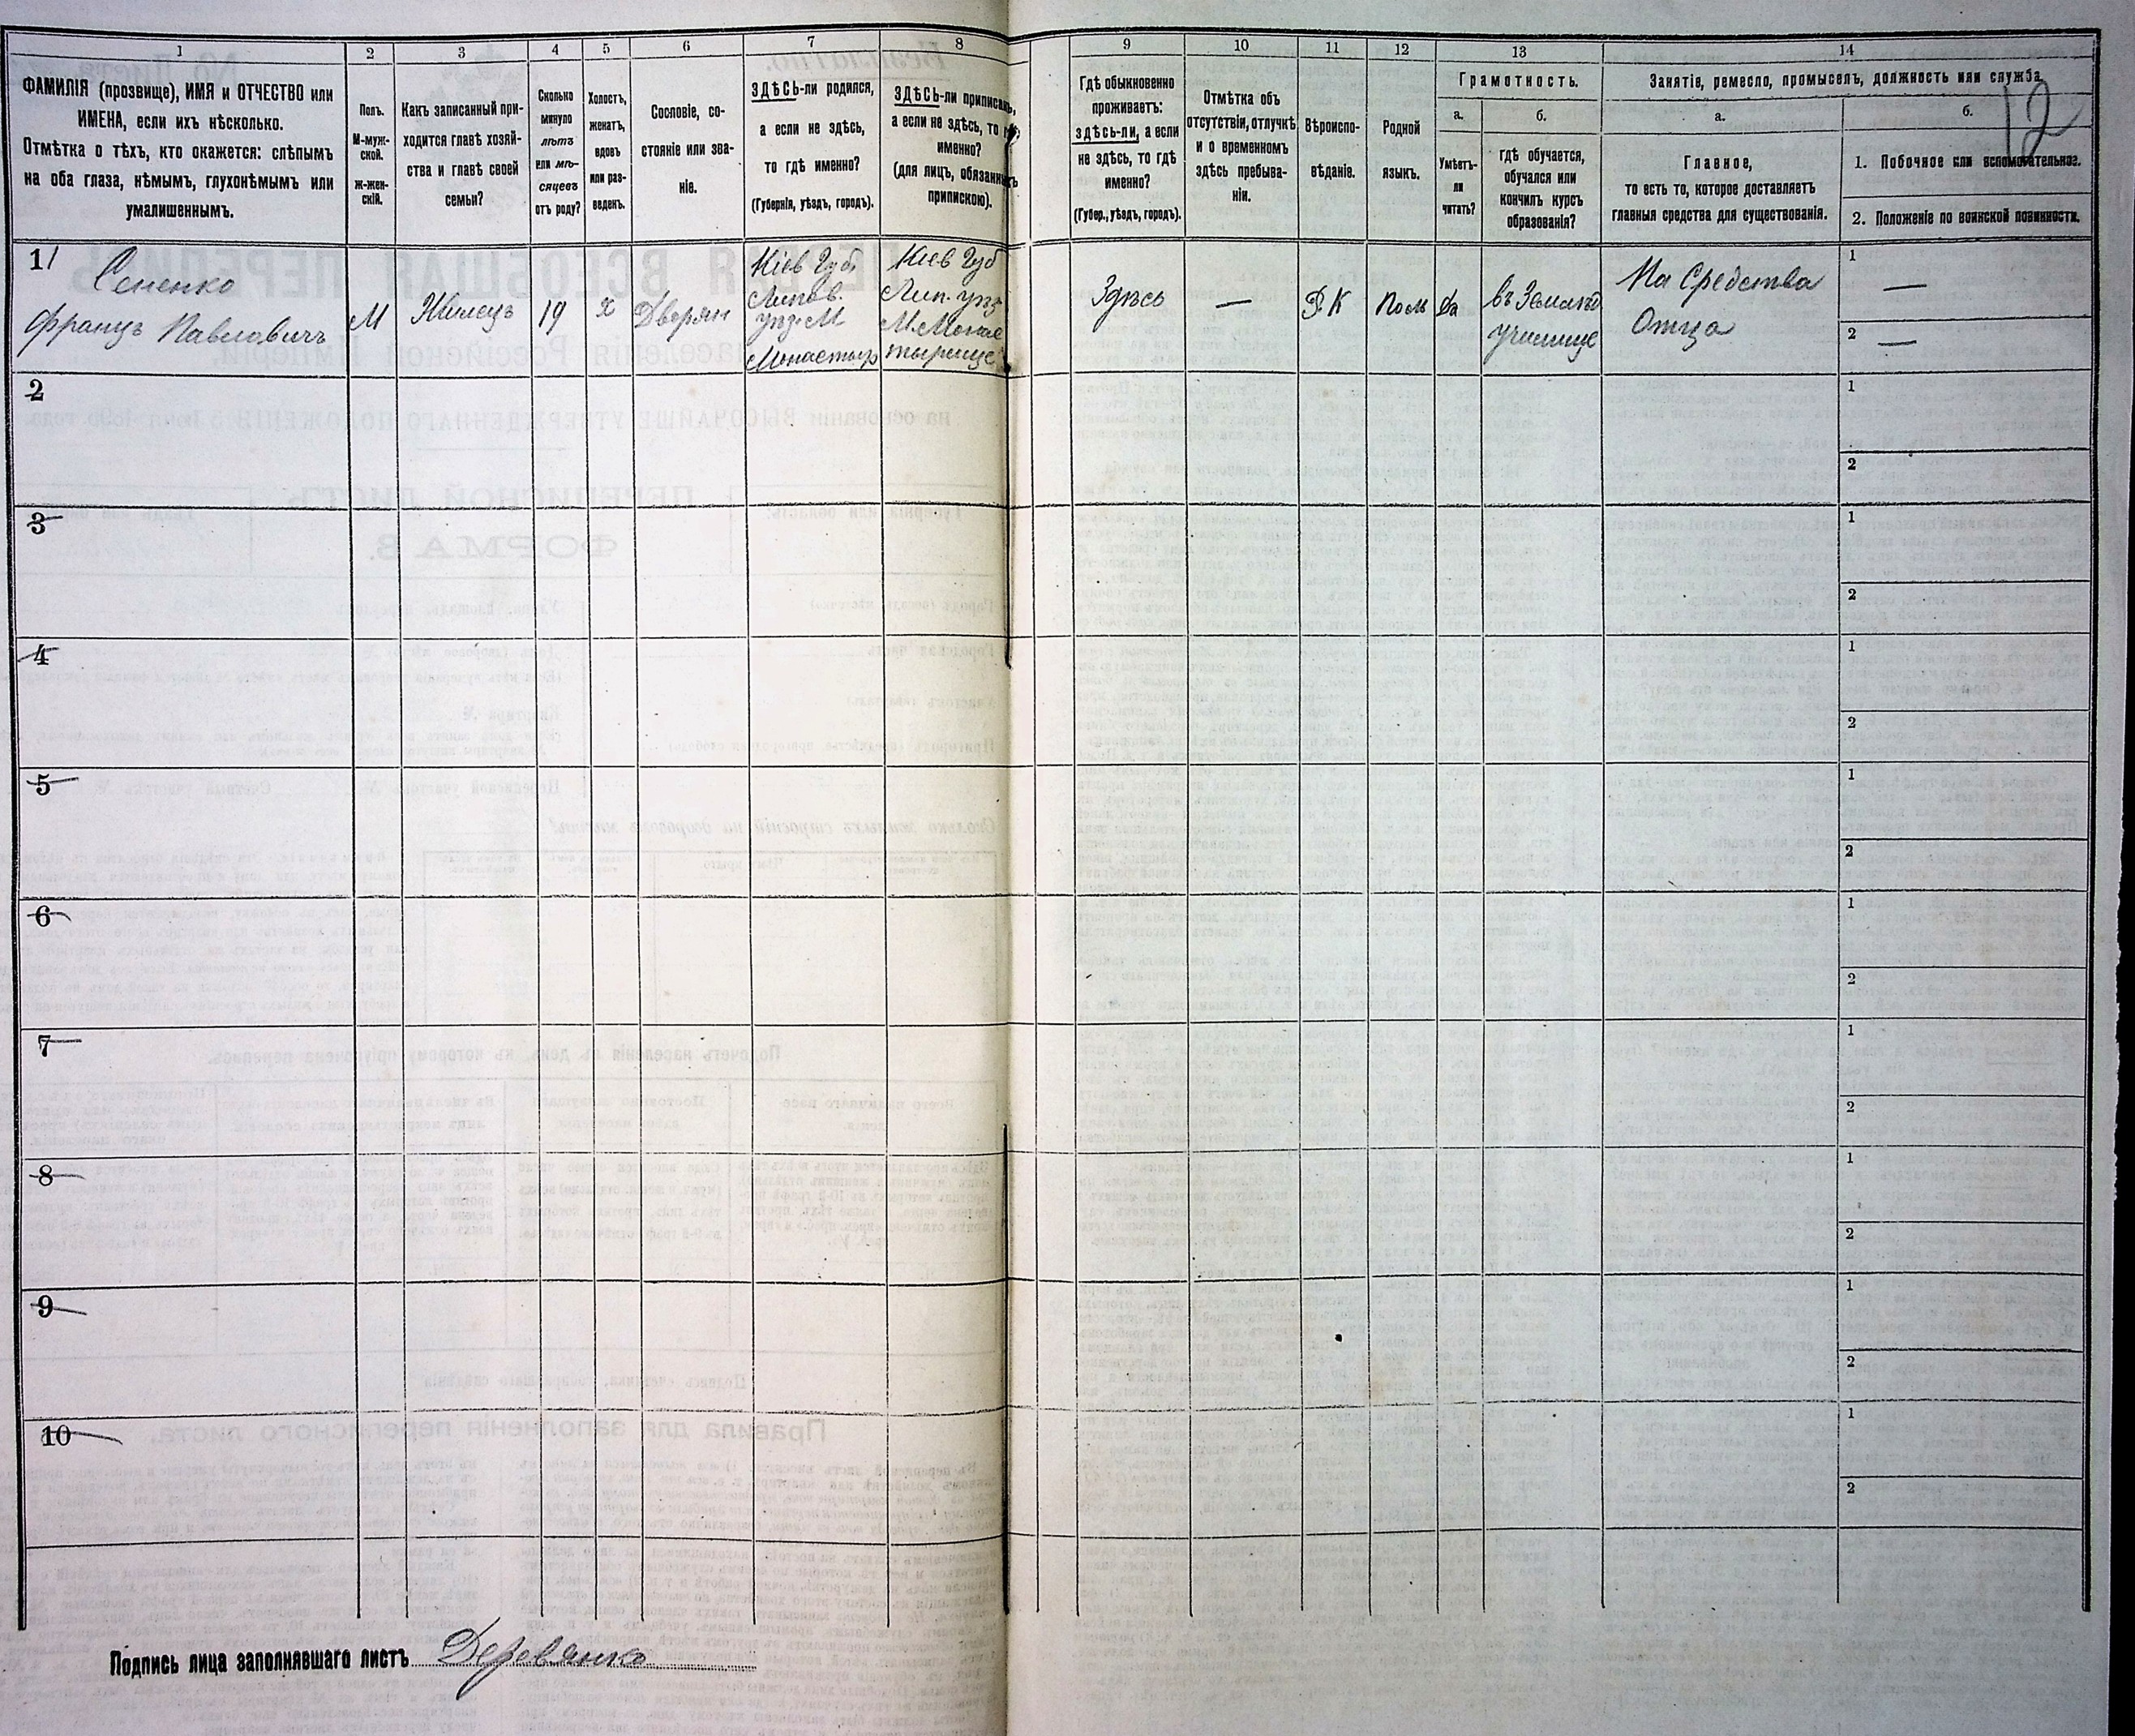 1
2
3
4
5
6
7
8
9
10
11
12
13
14
12
ФАМИЛІЯ (прозвище), ИМЯ и ОТЧЕСТВО или
ИМЕНА, если ихъ нѣсколько.
Отмѣтка о тѣхъ, кто окажется: слѣпымъ
на оба глаза, нѣмымъ, глухонѣмымъ или
умалишеннымъ.
Полъ.
М-муж-
ской.
Ж-жен-
скій.
Какъ записанный при-
ходится главѣ хозяй-
ства и главѣ своей
семьи?
Сколько
минуло
лѣтъ
или мѣ-
сяцевъ
отъ роду?
Холостъ,
женатъ,
вдовъ
или раз-
веденъ.
Сословіе, со-
стояніе или зва-
ніе.
ЗДѢСЬ-ли родился,
а если не здѣсь,
то гдѣ именно?
(Губернія, уѣздъ, городъ).
ЗДѢСЬ-ли приписанъ,
а если не здѣсь, то гдѣ
именно?
(для лицъ, обязанныхъ
припискою).
Гдѣ обыкновенно
проживаетъ:
здѣсь-ли, а если
не здѣсь, то гдѣ
именно?
(Губер., уѣздъ, городъ).
Отмѣтка объ
отсутствіи, отлучкѣ
и о временномъ
здѣсь пребыва-
ніи.
Вѣроиспо-
вѣданіе.
Родной
языкъ.
Грамотность.
а.
Умѣетъ-
ли
читать?
б.
гдѣ обучается,
обучался или
кончилъ курсъ
образованія?
Занятія, ремесло, промыселъ, должность или служба.
а.
Главное,
то есть то, которое доставляетъ
главныя средства для существованія.
б.
1. Побочное или вспомогательное.
2. Положеніе по воинской повинности.
1/ Сененко
Францъ Павловичъ
М
Жилецъ
19
х
Дворян
Кіев Губ.
Липов.
уѣз. М
Монастыр
Кіев Губ
Лип. уѣз
М. Монас
тырище
Здѣсь
—
Р. К
Поль
да
въ Земледѣ
училище
На Средства
Отца
1
—
2
—
2
1
2
3
1
2
4
1
2
5
1
2
6
1
2
7
1
2
8
1
2
9
1
2
10
1
2
Подпись лица заполнявшаго листъ Деревянко